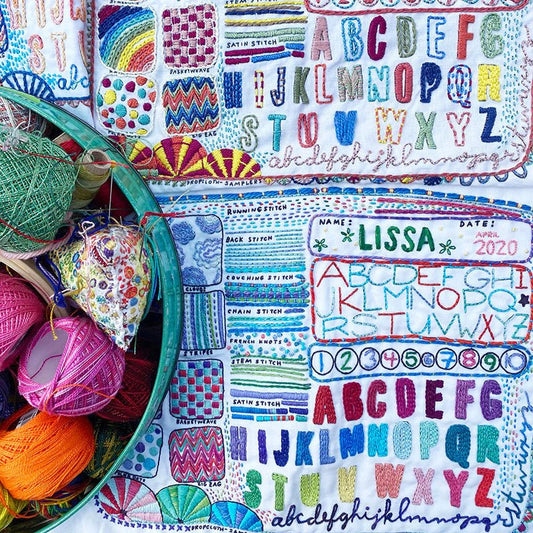 STEM STITCH
SATIN STITCH
BASKETWEAVE
ZIG ZAG
DROPCLOTH-SAMPLERS
ABCDEFG
HIJKLMNOPQR
STUVWXYZ
abcdefghijklmnopqrs
RUNNING STITCH
BACK STITCH
COUCHING STITCH
CHAIN STITCH
FRENCH KNOTS
STEM STITCH
SATIN STITCH
CLOUDS
STRIPES
BASKETWEAVE
ZIG ZAG
DROPCLOTH-SAMPLERS
NAME: DATE:
LISSA APRIL
2020
ABCDEFGHI
JKLMNOPQ
RSTUVWXYZ
1 2 3 4 5 6 7 8 9 10
ABCDEFG
HIJKLMNOPQR
STUVWXYZ
abcdefghijklmnopqrstuvwxyz